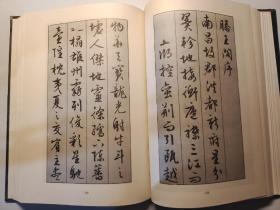 滕王閣序
南昌故郡洪都新府星分
翼軫地接衡廬襟三江而
五湖控蠻荊而引甌越
物華天寶龍光射牛斗之
墟人傑地靈徐孺下陳蕃
之榻雄州霧列俊彩星馳
臺隍枕夷夏之交賓主盡